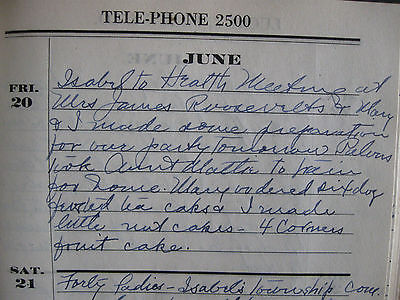 TELE-PHONE 2500
JUNE
FRI.
20
Isabel to Health Meeting at
Mrs James Roosevelts & Mary
& I made some preparation
for our party tomorrow
took Aunt Matta to train
for home. Mary ordered six doz
frosted tea cakes & I made
little nut cakes - 4 Corners
fruit cake.
SAT.
21
Forty ladies - Isabel's Township Com.